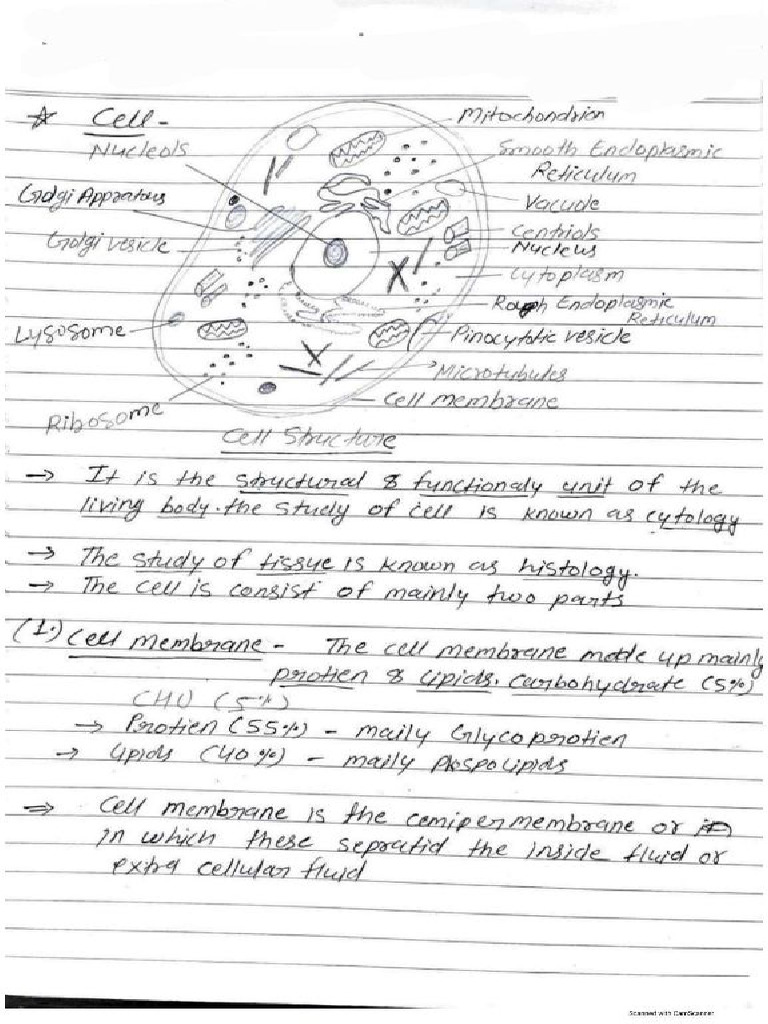 ☆ Cell -
Nucleols
Golgi Appratous
Golgi vesicle
Lysosome
Ribosome
Mitochondrion
Smooth Endoplasmic
Reticulum
Vacuole
Centriols
Nucleus
Cytoplasm
Rough Endoplasmic
Reticulum
Pinocytotic vesicle
Microtubules
Cell membrane
Cell Structure
→ It is the structural & functionaly unit of the
living body. the study of cell is known as cytology
→ The study of tissue is known as histology.
→ The cell is consist of mainly two parts
(1.) Cell membrane - The cell membrane made up mainly
protien & Lipids. Carbohydrate (5%)
CHO (5%)
→ Protien (55%) - maily Glycoprotien
→ Lipids (40%) - maily Plospolipids
⇒ Cell membrane is the cemipermembrane or
in which these sepratid the inside fluid or
extra cellular fluid
Scanned with CamScanner